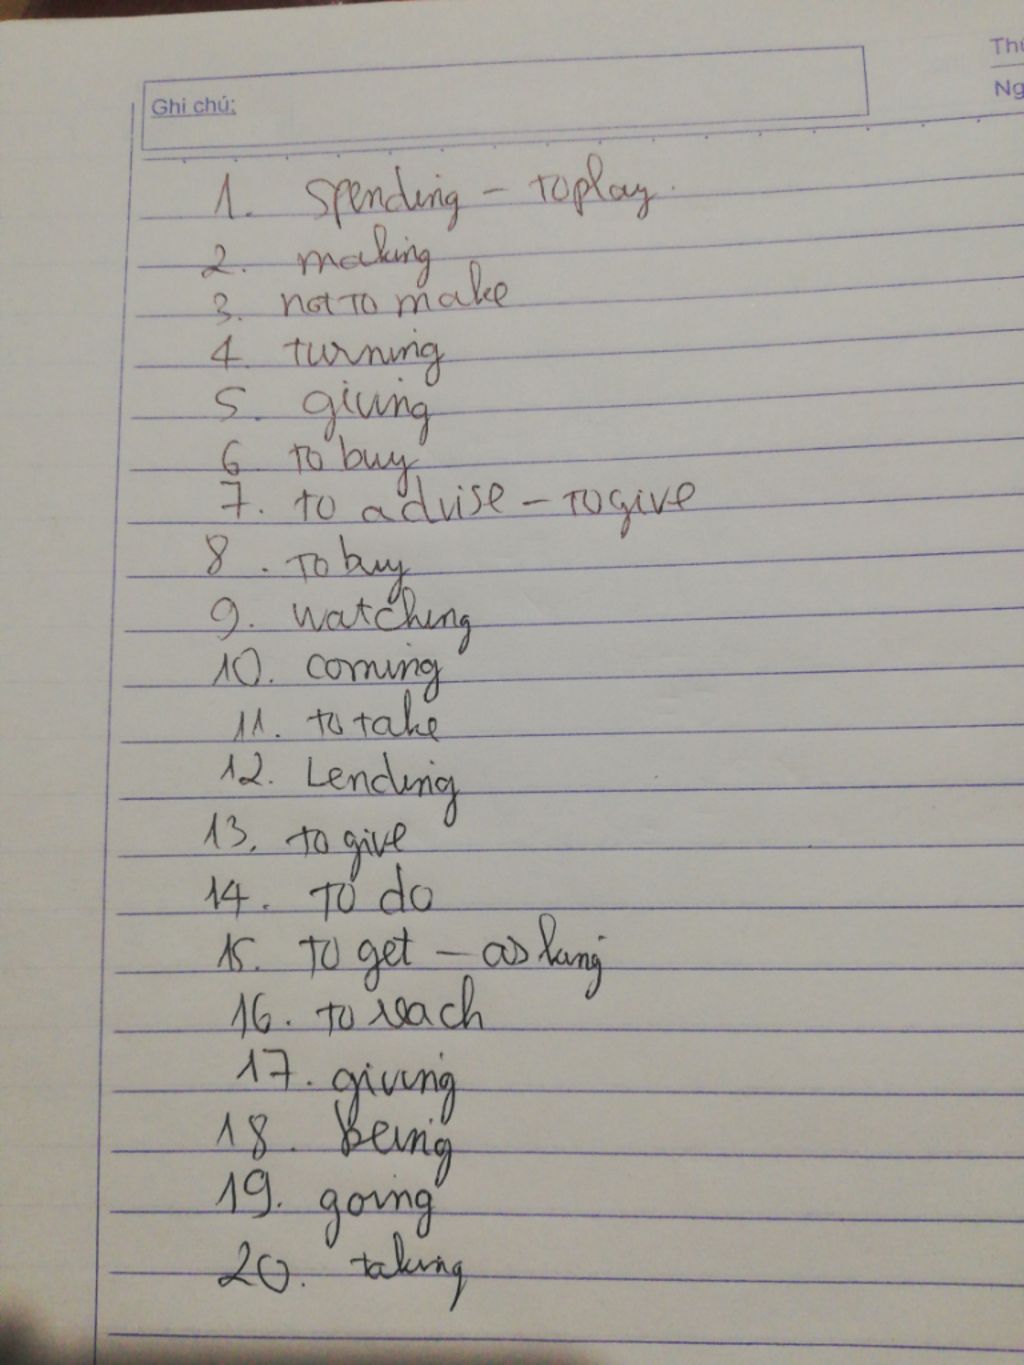 Ghi chú:
Th
Ng
1. spending - to play.
2. making
3. not to make
4. turning
5. giving
6 to buy
7. to advise - to give
8. to buy
9. watching
10. coming
11. to take
12. Lending
13. to give
14. to do
15. to get - asking
16. to reach
17. giving
18. Being
19. going
20. taking